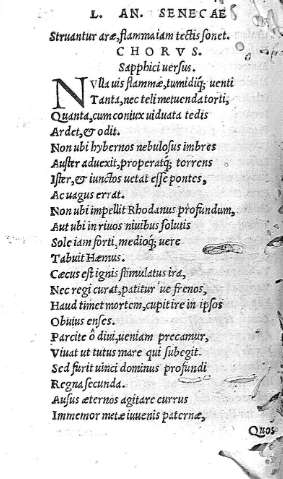 L. AN. SENECAE
Struantur aræ, flamma iam tectis sonet.
CHORVS.
Sapphici uersus.
NVlla uis flammæ, tumidiq; uenti
Tanta, nec teli metuenda torti,
Quanta, cum coniux uiduata tedis
Ardet, & odit.
Non ubi hybernos nebulosus imbres
Auster aduexit, properatq; torrens
Ister, & iunctos uetat esse pontes,
Ac uagus errat.
Non ubi impellit Rhodanus profundum,
Aut ubi in riuos niuibus solutis
Sole iam forti, medioq; uere
Tabuit Hæmus.
Cæcus est ignis stimulatus ira,
Nec regi curat, patitur ue frenos,
Haud timet mortem, cupit ire in ipsos
Obuius enses.
Parcite ô diui, ueniam precamur,
Viuat ut tutus mare qui subegit.
Sed furit uinci dominus profundi
Regna secunda.
Ausus æternos agitare currus
Immemor metæ iuuenis paternæ,
Quos